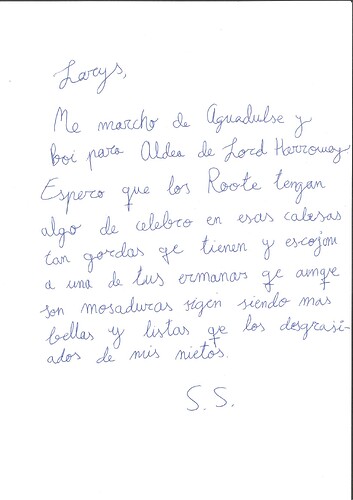 Larys,
Me marcho de Aguadulse y
boi para Aldea de Lord Herroway
Espero que los Roote tengan
algo de celebro en esas cabesas
tan gordas qe tienen y escojan
a una de tus ermanas qe aunqe
son mosaduras sigen siendo mas
bellas y listas qe los desgrasi-
ados de mis nietos.
S. S.